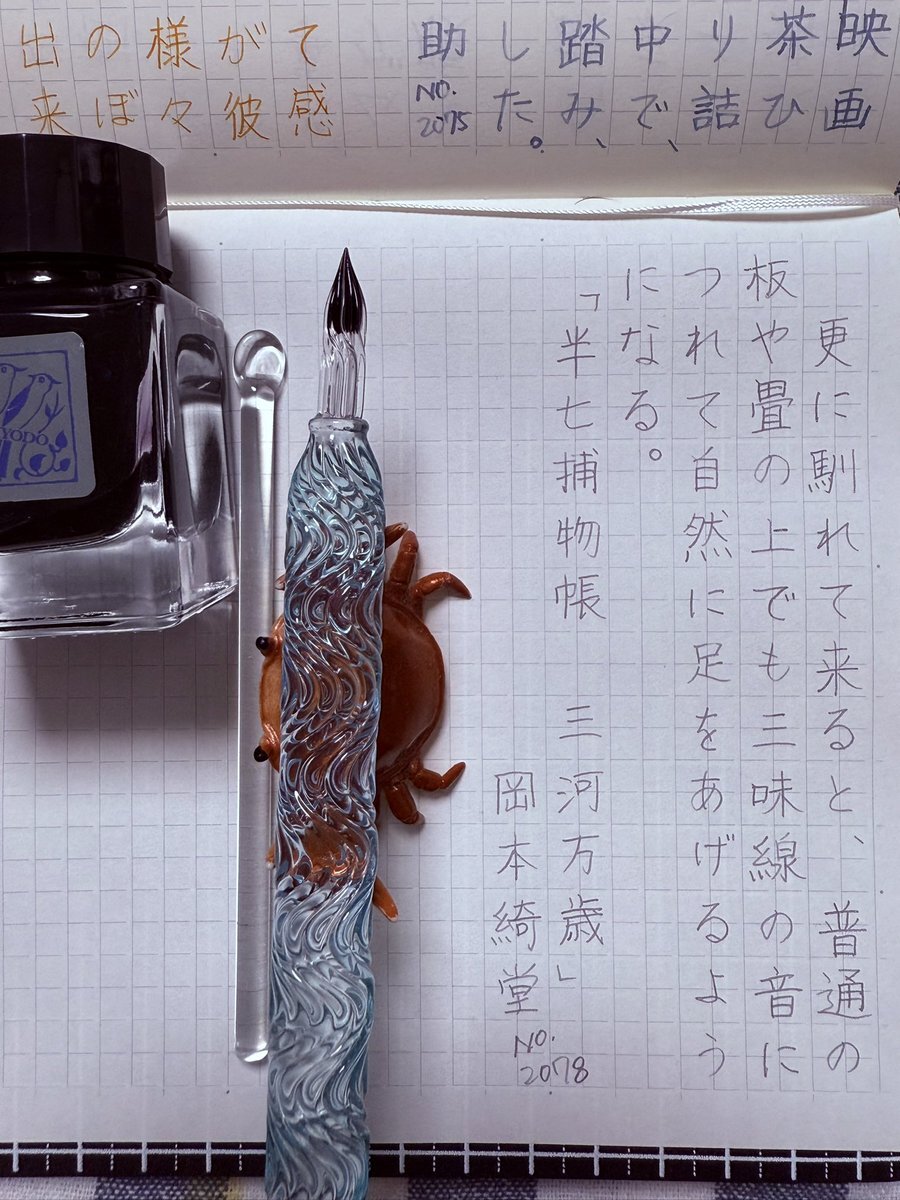 映画
茶ひ
り詰
中で、
踏み、
した。
助
NO.
2075
て感
が彼
様々
のぼ
出来
更に馴れて来ると、普通の
板や畳の上でも三味線の音に
つれて自然に足をあげるよう
になる。
「半七捕物帳　三河万歳」
岡本綺堂
NO.
2078
YODO